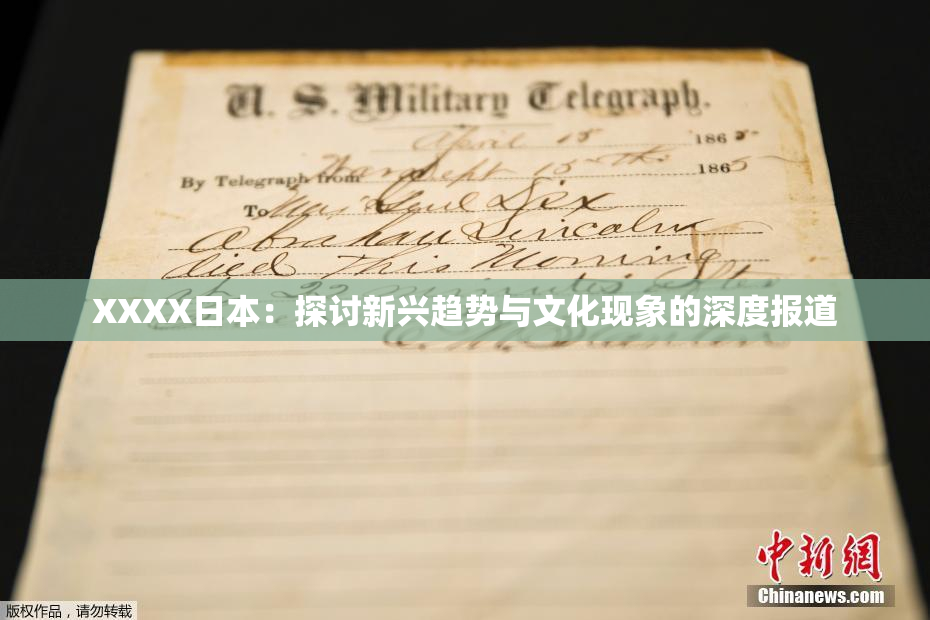 U. S. Military Telegraph.
April 15 1865
By Telegraph from War Dept 15th 1865
To Maj Genl Dix
Abraham Lincoln
died This Morning
at 22 minutes after
XXXX日本：探讨新兴趋势与文化现象的深度报道
E. M. Stanton
中新網
Chinanews.com
版权作品，请勿转载